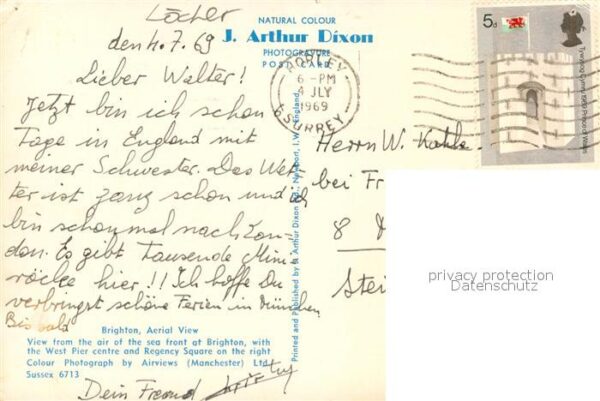 Löcher
den 4.7.69
Lieber Walter!
Jetzt bin ich schon
Tage in England mit
meiner Schwester. Das Wet-
ter ist ganz schön und ich
bin schon mal nach Lon-
don. Es gibt Tausende Mini
röcke hier!! Ich hoffe Du
verbringst schöne Ferien in München
Bis bald
Dein Freund
NATURAL COLOUR
J. Arthur Dixon
PHOTOGRAVURE
POST CARD
6 - PM
4 JLY
1969
SURREY
5d
Tywysog Cymru 1969 Prince of Wales
Herrn W. Kohle
bei Fr
8
Stei
Printed and Published by J. Arthur Dixon Ltd., Newport, I.W., England.
privacy protection
Datenschutz
Brighton, Aerial View
View from the air of the sea front at Brighton, with
the West Pier centre and Regency Square on the right
Colour Photograph by Airviews (Manchester) Ltd.
Sussex 6713